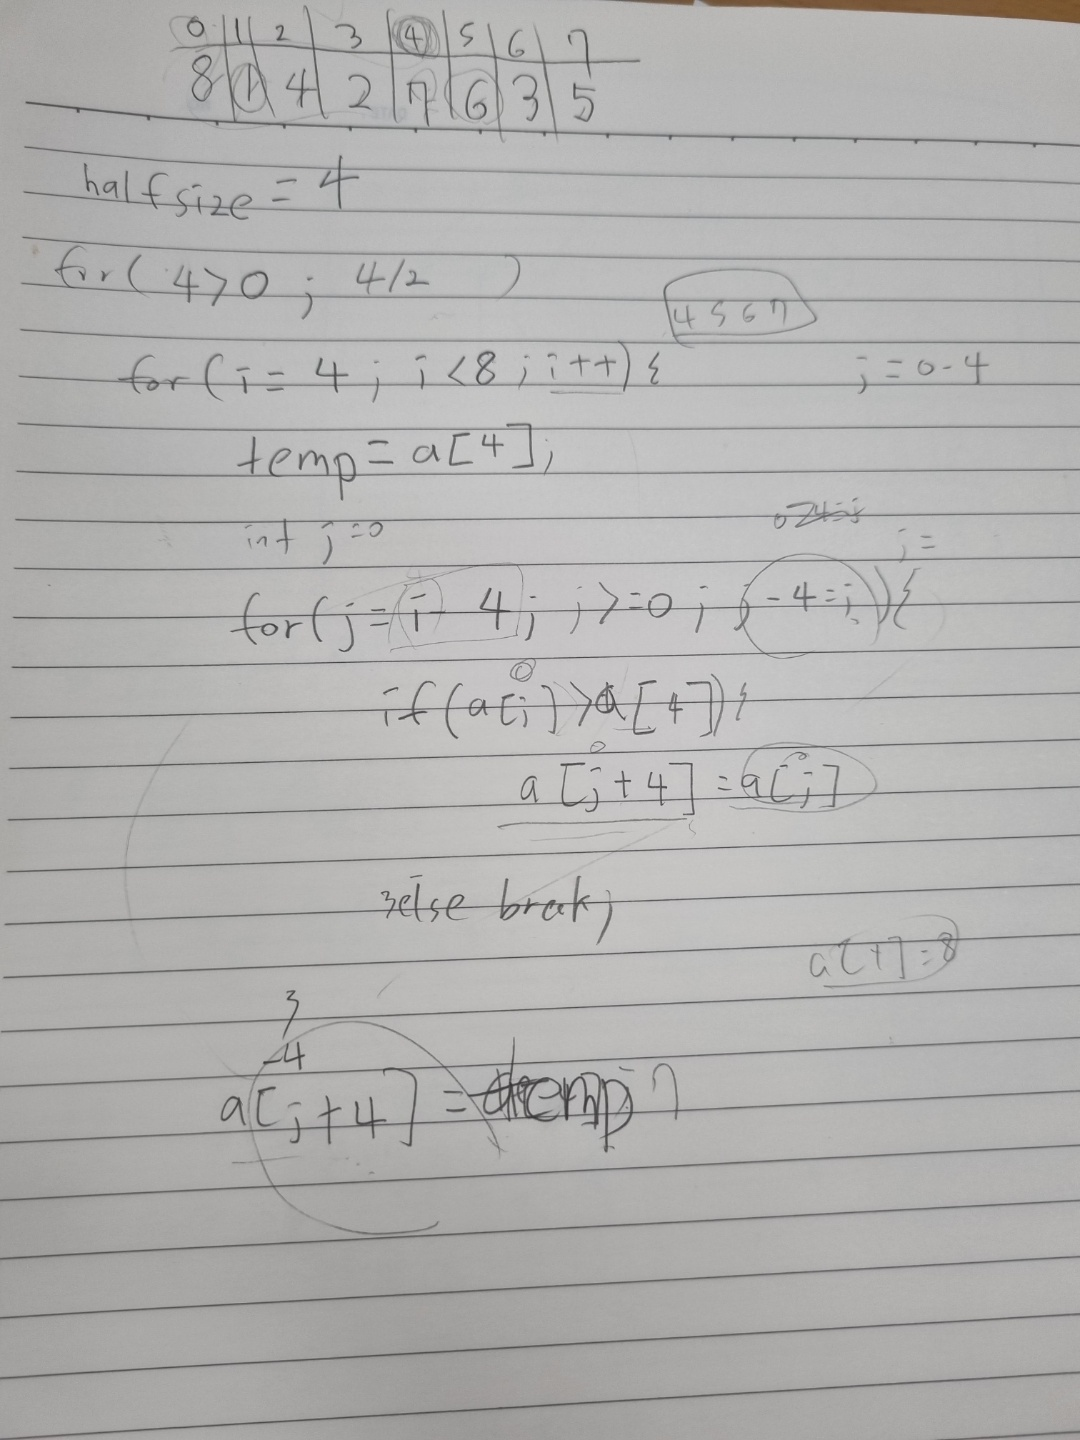 0 1 2 3 4 5 6 7
8 1 4 2 7 6 3 5
halfsize = 4
for( 4>0 ; 4/2 )
4 5 6 7
for(i = 4 ; i<8 ; i++) {
j = 0-4
temp = a[4];
int j=0
j =
for(j = i - 4; j>=0 ; j -4=j){
0
if(a[j] > a[4]){
0 0
a[j+4] = a[j]
}else break;
a[4]=8
}
-4
a[j+4] = temp 7